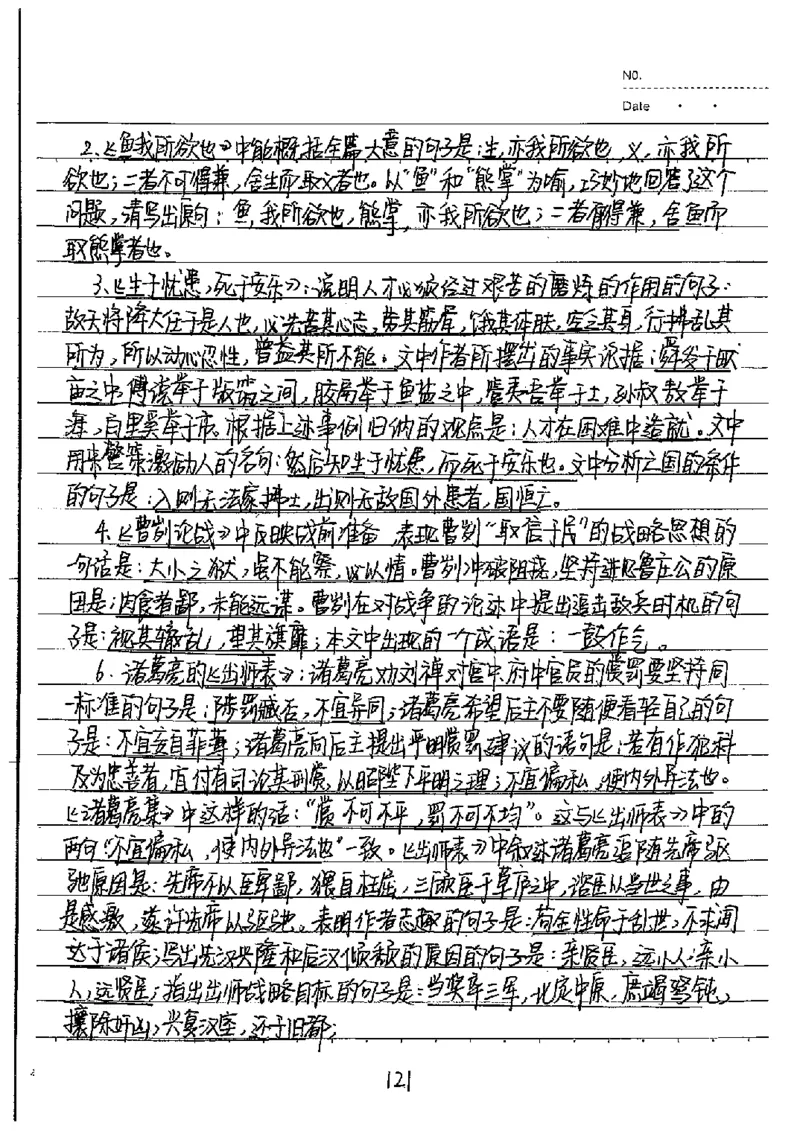 NO.
Date
2、《鱼我所欲也》中能概括全篇大意的句子是:生,亦我所欲也,义,亦我所
欲也;二者不可得兼,舍生而取义者也。以"鱼"和"熊掌"为喻,巧妙地回答了这个
问题,请写出原句:鱼,我所欲也,熊掌,亦我所欲也;二者不可得兼,舍鱼而
取熊掌者也。
3、《生于忧患,死于安乐》:说明人才必须经过艰苦的磨炼的作用的句子:
故天将降大任于是人也,必先苦其心志,劳其筋骨,饿其体肤,空乏其身,行拂乱其
所为,所以动心忍性,曾益其所不能。文中作者所摆出的事实论据:舜发于畎
亩之中,傅说举于版筑之间,胶鬲举于鱼盐之中,管夷吾举于士,孙叔敖举于
海,百里奚举于市。根据上述事例归纳的观点是:人才在困难中造就。文中
用来警策激励人的名句:然后知生于忧患,而死于安乐也。文中分析亡国的条件
的句子是:入则无法家拂士,出则无敌国外患者,国恒亡。
4.《曹刿论战》中反映战前准备,表现曹刿"取信于民"的战略思想的
句话是:大小之狱,虽不能察,必以情。曹刿冲破阻挠,坚持进见鲁庄公的原
因是:肉食者鄙,未能远谋。曹刿在对战争的论述中提出追击敌兵时机的句
子是:视其辙乱,望其旗靡;本文中出现的一个成语是:一鼓作气。
6、诸葛亮的《出师表》:诸葛亮劝刘禅对宫中、府中官员的赏罚要坚持同
一标准的句子是:陟罚臧否,不宜异同;诸葛亮希望后主不要随便看轻自己的句
子是:不宜妄自菲薄;诸葛亮向后主提出平明赏罚建议的语句是:若有作犯科
及为忠善者,宜付有司论其刑赏,以昭陛下平明之理;不宜偏私,使内外异法也。
《诸葛亮集》中这样的话:"赏不可不平,罚不可不均"。这与《出师表》中的
两句"不宜偏私,使内外异法也"一致。《出师表》中叙述诸葛亮追随先帝驱
驰原因是:先帝不以臣卑鄙,猥自枉屈,三顾臣于草庐之中,谘臣以当世之事,由
是感激,遂许先帝以驱驰。表明作者志趣的句子是:苟全性命于乱世,不求闻
达于诸侯;写出先汉兴隆和后汉倾颓的原因的句子是:亲贤臣,远小人;亲小
人,远贤臣;指出出师战略目标的句子是:当奖率三军,北定中原,庶竭驽钝,
攘除奸凶,兴复汉室,还于旧都;
121